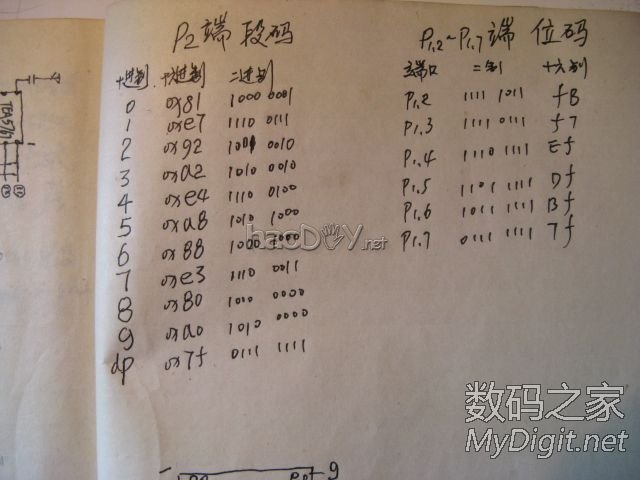 P2端 段码
十进制 十六进制 二进制
0 0x81 1000 0001
1 0xe7 1110 0111
2 0x92 1001 0010
3 0xa2 1010 0010
4 0xe4 1110 0100
5 0xa8 1010 1000
6 0x88 1000 1000
7 0xe3 1110 0011
8 0x80 1010 0000
9 0xa0 1010 0000
dp 0x7f 0111 1111
P1.2~P1.7 端 位码
端口 二制 十六制
P1.2 1111 1011 fB
P1.3 1111 0111 f7
P1.4 1110 1111 Ef
P1.5 1101 1111 Df
P1.6 1011 1111 Bf
P1.7 0111 1111 7f
haoDIY.net
9
数码之家
MyDigit.net